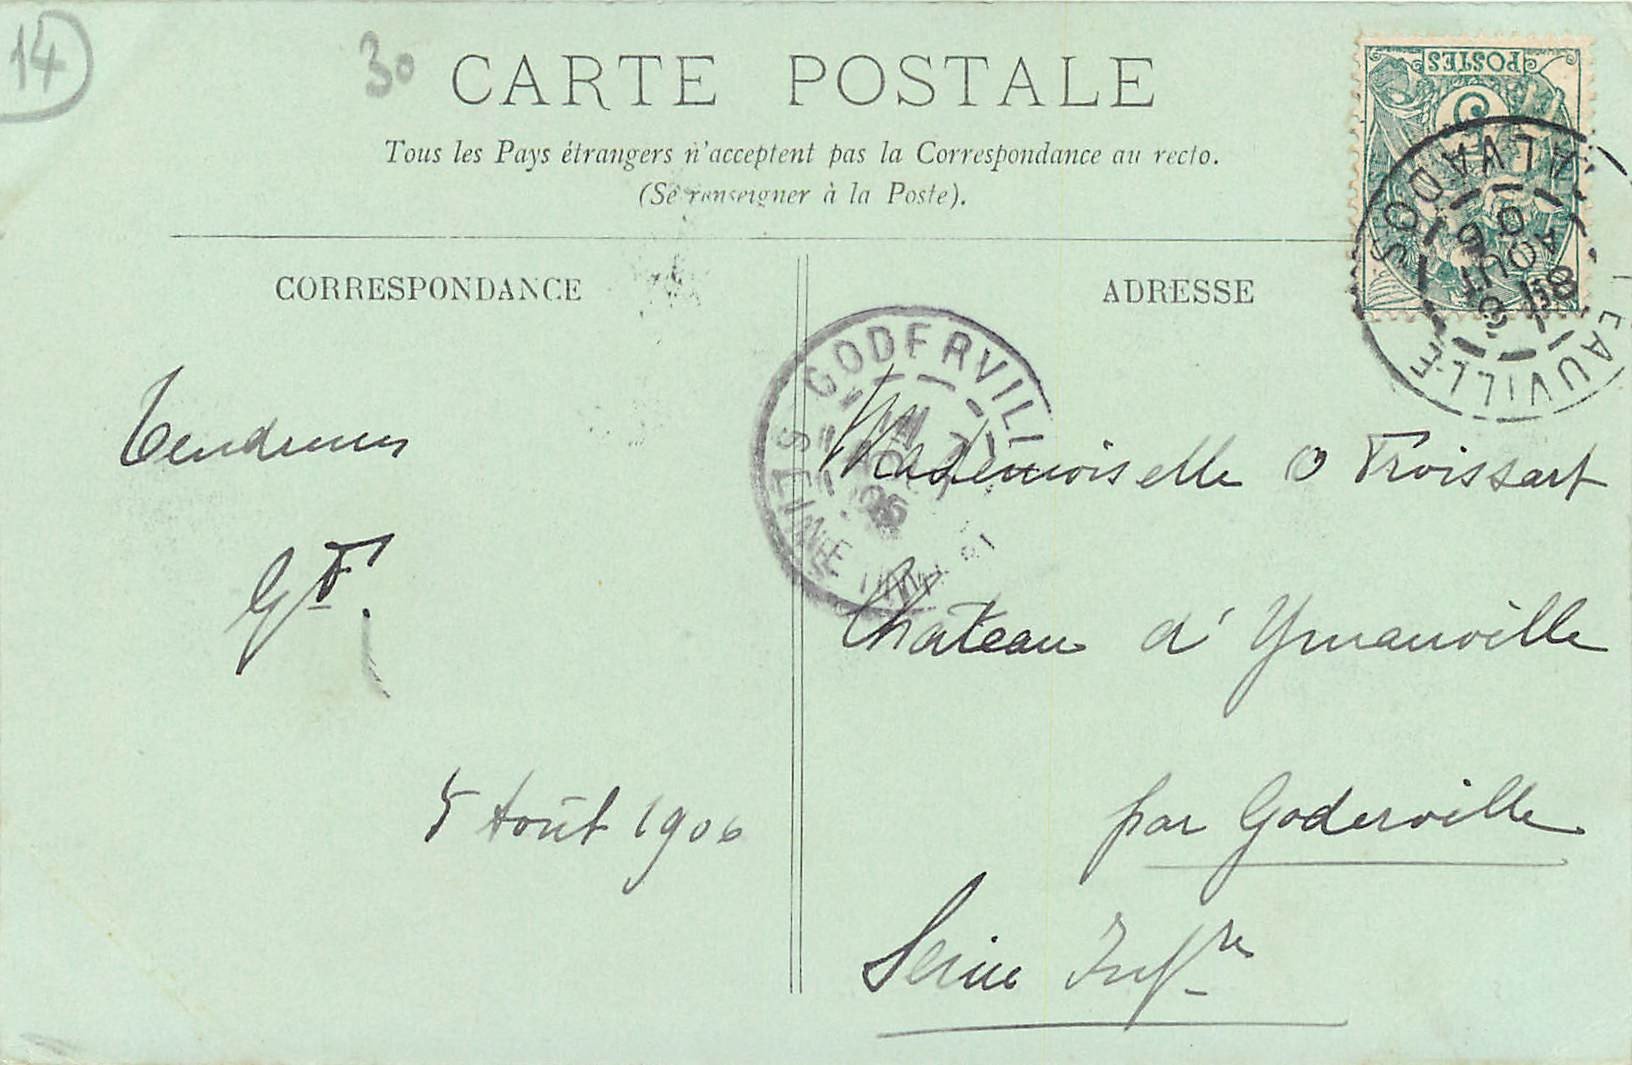 14
30
CARTE POSTALE
Tous les Pays étrangers n'acceptent pas la Correspondance au recto.
(Se renseigner à la Poste).
POSTES
5
CALVADOS
6
AOUT
06
EAUVILLE
CORRESPONDANCE
ADRESSE
GODERVILLE
SEINE INF
06
Tendresses
Mademoiselle O Froissart
Château d'Ymauville
5 Août 1906
par Goderville
Seine Infre